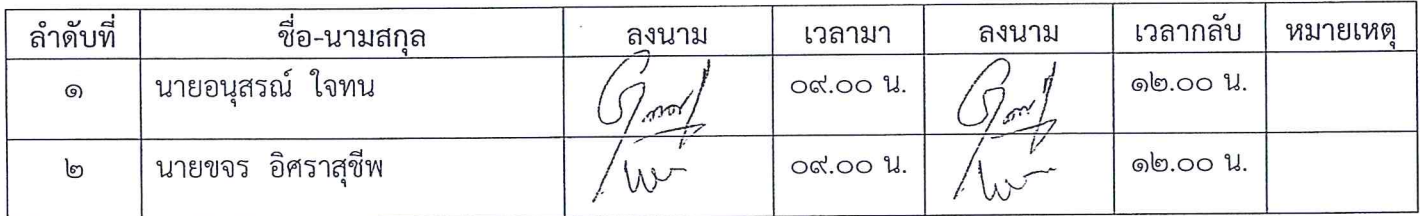 ลำดับที่ ชื่อ-นามสกุล ลงนาม เวลามา ลงนาม เวลากลับ หมายเหตุ
๑ นายอนุสรณ์ ใจทน ๐๙.๐๐ น. ๑๒.๐๐ น.
๒ นายขจร อิศราสุชีพ ๐๙.๐๐ น. ๑๒.๐๐ น.